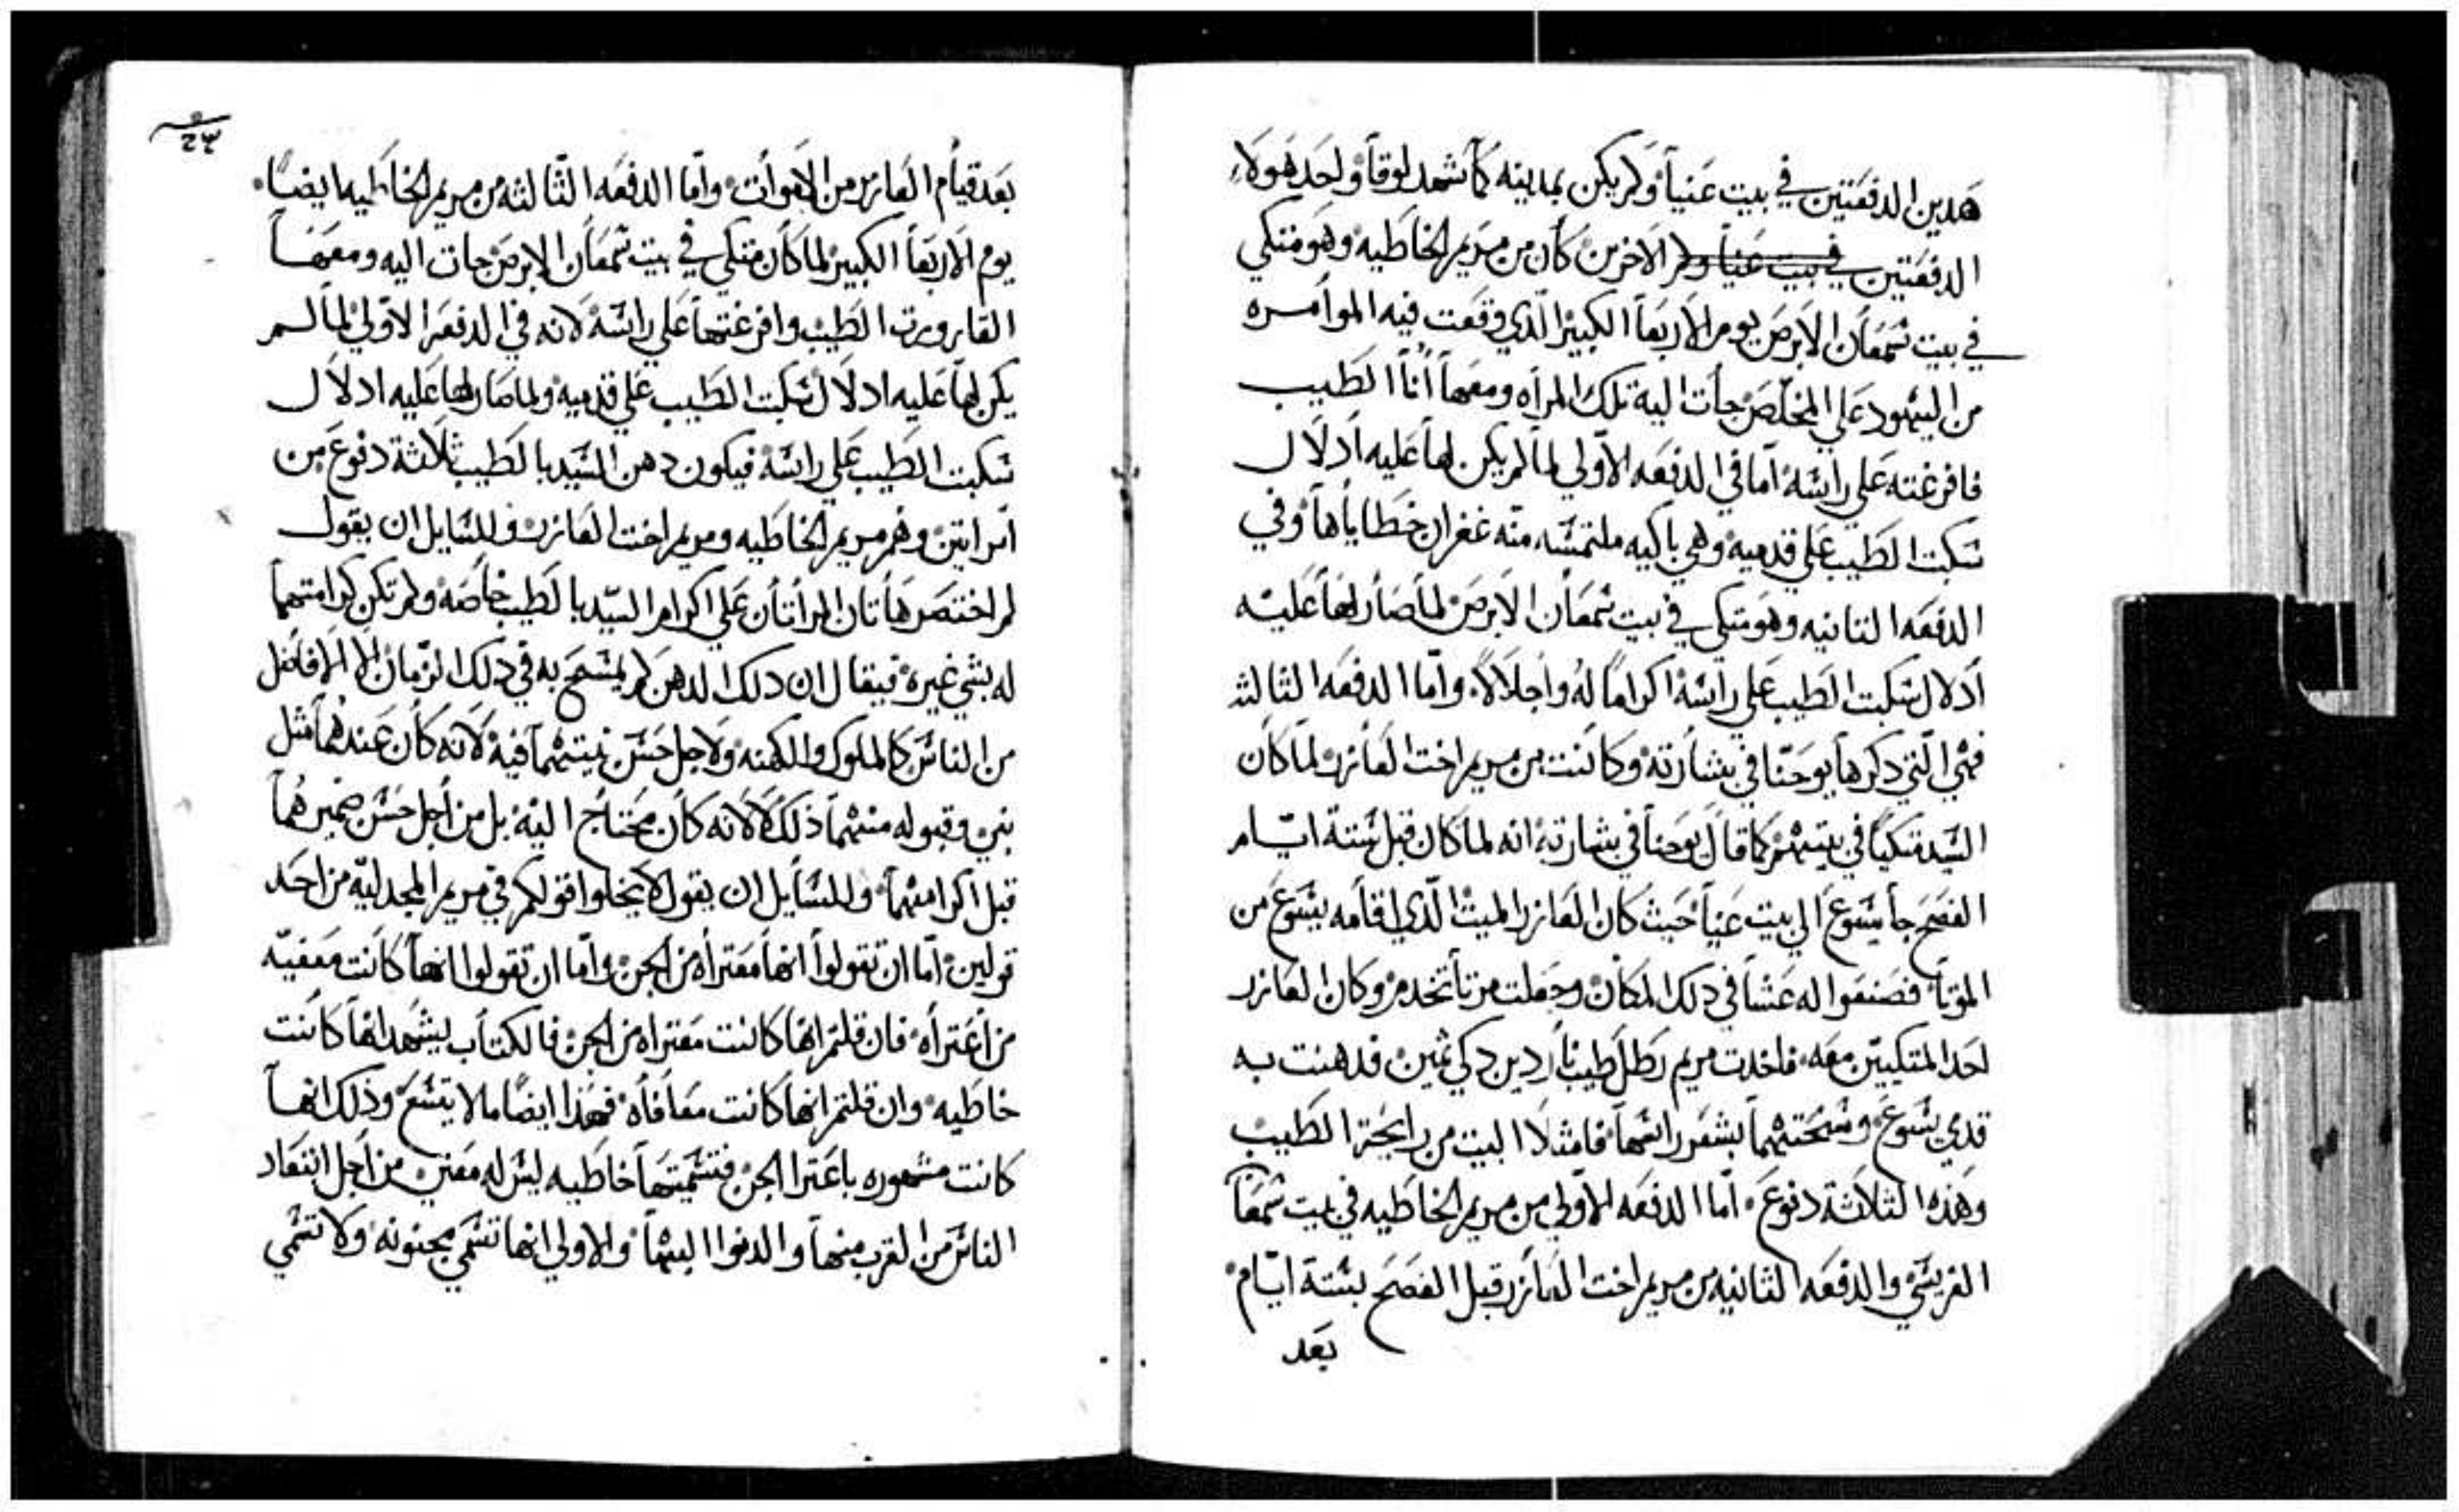 هدين الدفعتين في بيت عنيا ولم يكن بمدينه كما شهد لوقا واحد هولاء
الدفعتين في بيت عنيا ولم الاخرين كان من مريم الخاطيه وهو متكي
في بيت شمعان الابرص يوم الاربعا الكبير الذي وقعت فيه الموامره
من اليهود علي المخلص جات اليه تلك المراه ومعها انا الطيب
فافرغته علي راسه اما في الدفعه الاولي لما لم يكن لها عليه ادلال
سكبت الطيب علي قدميه وهي باكيه ملتمسه منه غفران خطاياها وفي
الدفعه التانيه وهو متكي في بيت شمعان الابرص لما صار لها عليه
ادلال سكبت الطيب علي راسه اكراما له واجلالا واما الدفعه الثالثه
فهي التي دكرها يوحنا في بشارته وكانت من مريم اخت العازر لما كان
السيد متكيا في بيتهم كما قال يوحنا في بشارته انه لما كان قبل ستة ايام
الفصح جا يسوع الي بيت عنيا حيث كان العازر الميت الدي اقامه يسوع من
الموتا فصنعوا له عشا في دلك المكان وجعلت مرتا تخدم وكان العازر
احد المتكيين معه فاخدت مريم رطل طيب ناردين دكي ثمين فدهنت به
قدمي يسوع ومسحتهما بشعر راسها فامتلا البيت من رايحة الطيب
وهذه الثلاثة دفوع اما الدفعه الاولي من مريم الخاطيه في بيت شمعا
الفريسي والدفعه الثانيه من مريم اخت العازر قبل الفصح بستة ايام
بعد
٢٣
بعد قيام العازر من الاموات واما الدفعه الثالثه من مريم الخاطيه ايضا
يوم الاربعا الكبير لما كان متكي في بيت شمعان الابرص جات اليه ومعها
القارورت الطيب وافرغتها علي راسه لانه في الدفعه الاولي لما لم
يكن لها عليه ادلال سكبت الطيب علي قدميه ولما صار لها عليه ادلال
سكبت الطيب علي راسه فيكون دهن السيد بالطيب ثلاثة دفوع من
امراتين وهم مريم الخاطيه ومريم اخت العازر وللسايل ان يقول
لم اختصر هاتان المراتان علي اكرام السيد بالطيب خاصه ولم تكن كرامتهما
له بشي غيره فيقال ان دلك الدهن لم يمسح به في دلك الزمان الا الافاضل
من الناس كالملوك والكهنه ولاجل حسن نيتهما فيه لانه كان عندهما مثل
نبي وقبوله منهما ذلك لا لانه كان محتاج اليه بل من اجل حسن ضميرهما
قبل اكرامهما وللسايل ان يقول لا يخلوا قولكم في مريم المجدليه من احد
قولين اما ان تقولوا انها معتراه من الجن واما ان تقولوا انها كانت معفيه
من اعتراه فان قلتم انها كانت معتراه من الجن فالكتاب يشهد انها كانت
خاطيه وان قلتم انها كانت معافاه فهذا ايضا ملا يتسع وذلك انها
كانت مشهوره باعترا الجن فتسميتها خاطيه ليس له معني من اجل ابتعاد
الناس من القرب منها والدنوا اليها والاولي انها تسمي مجنونه ولا تسمي